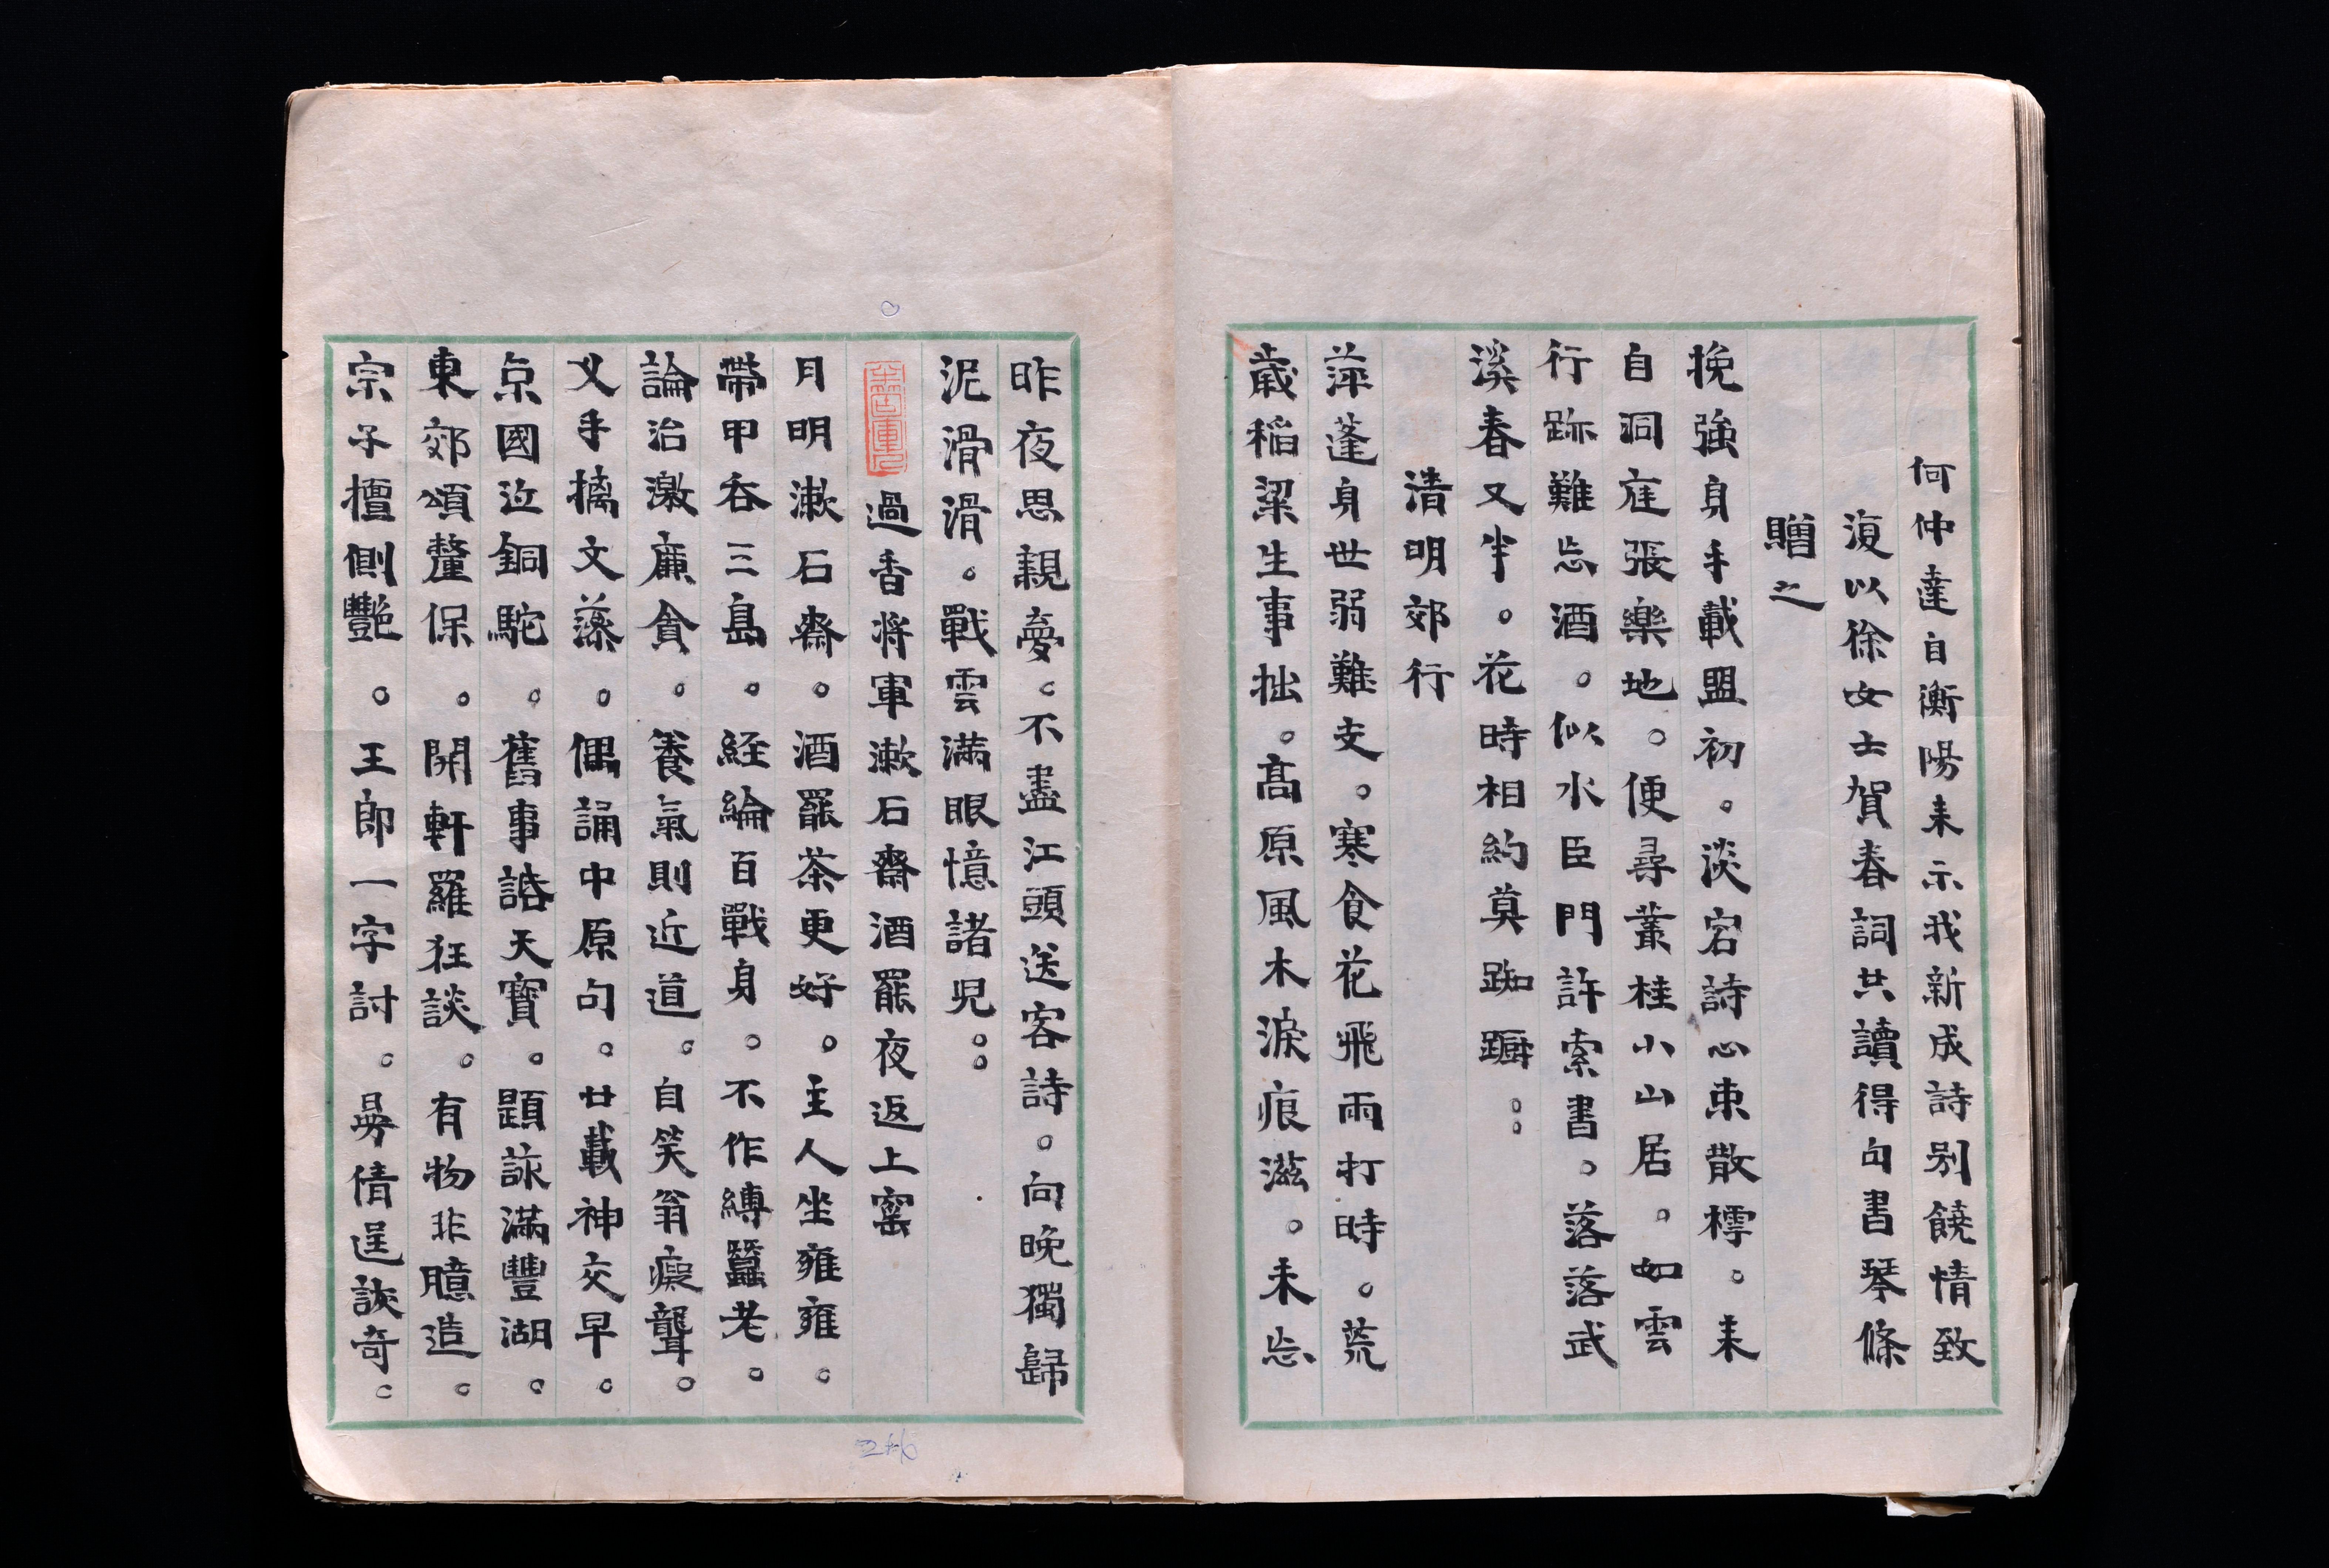 何仲達自衡陽来示我新成詩别饒情致
復以徐女士賀春詞共讀得句書琴條
贈之
挽強身手載盟初。淡宕詩心束散樗。来
自洞庭張樂地。便尋叢桂小山居。如雲
行跡難忘酒。似水臣門許索書。落落武
溪春又半。花時相約莫踟蹰。。
清明郊行
萍蓬身世弱難支。寒食花飛雨打時。荒
歲稻粱生事拙。高原風木淚痕滋。未忘
昨夜思親夢。不盡江頭送客詩。向晚獨歸
泥滑滑。戰雲滿眼憶諸児。。
過香將軍漱石齋酒罷夜返上窰
月明漱石齋。酒罷茶更好。主人坐雍雍。
帶甲吞三島。経綸百戰身。不作縛蠶老。
論治激廉貪。養氣則近道。自笑翁瘼聾。
叉手摛文藻。偶誦中原句。廿載神交早。
京國泣銅駝。舊事諙天寶。題詠滿豐湖。
東郊頌釐保。開軒羅狂談。有物非臆造。
宗子擅側艷。王郎一字討。易倩逞詼奇。